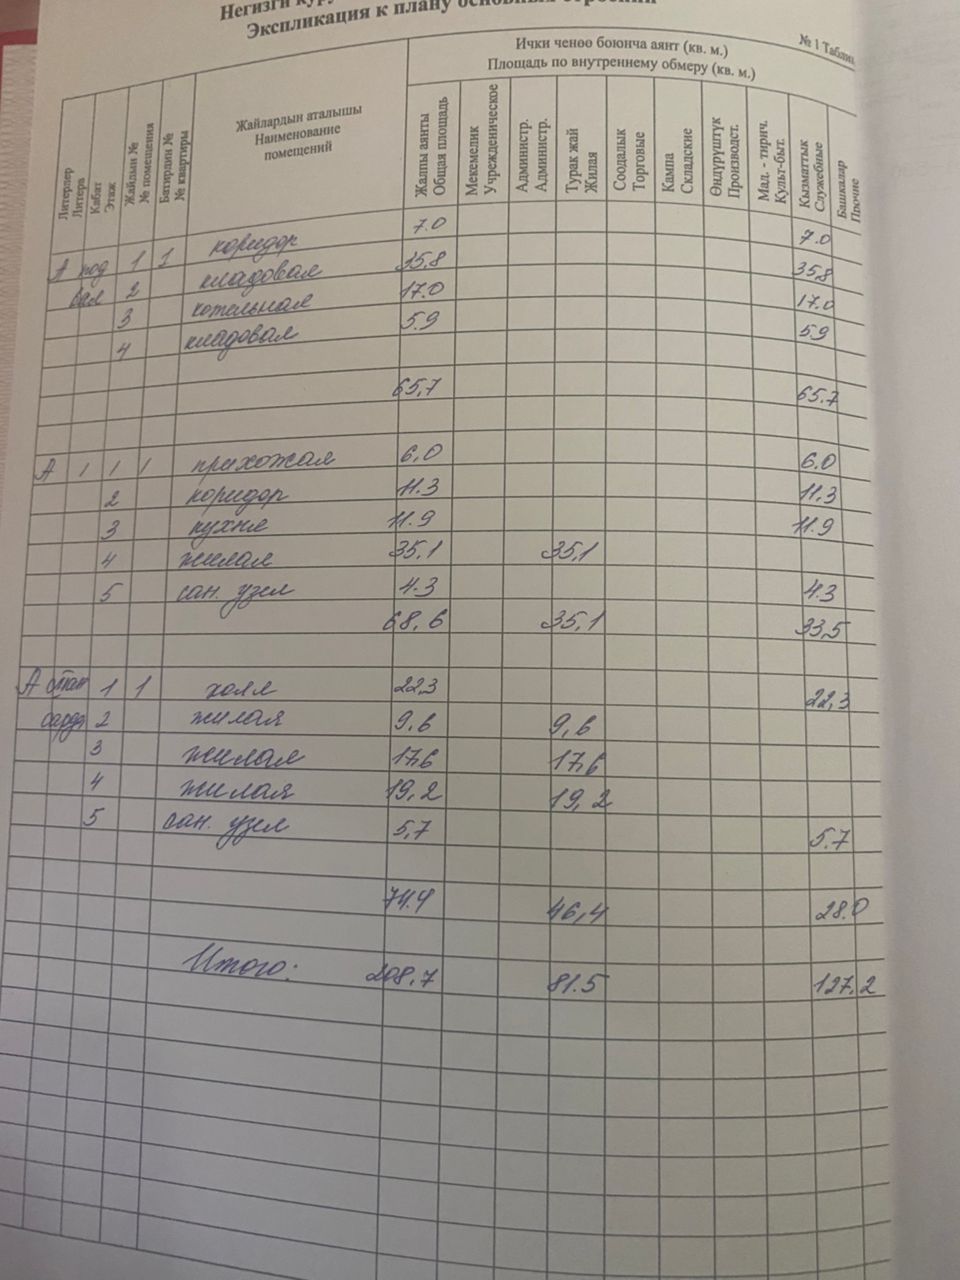 Негизги
Экспликация к плану
№ 1 Таблиц
Ички ченөө боюнча аянт (кв. м.)
Площадь по внутреннему обмеру (кв. м.)
Литерлер
Литера
Кабат
Этаж
Жайдын №
№ помещения
Батирдин №
№ квартиры
Жайлардын аталышы
Наименование
помещений
Жалпы аянты
Общая площадь
Мекемелик
Учрежденическое
Администр.
Администр.
Турак жай
Жилая
Соодалык
Торговые
Кампа
Складские
Өндүрүштүк
Производст.
Мад. - тирич.
Культ-быт.
Кызматтык
Служебные
Башкалар
Прочие
А под 1 1 коридор 7.0 7.0
вал 2 кладовая 35,8 35,8
3 котельная 17.0 17.0
4 кладовая 5.9 5.9
65,7 65.7
А 1 1 1 прихожая 6,0 6.0
2 коридор 11.3 11.3
3 кухня 11.9 11.9
4 жилая 35.1 35,1
5 сан. узел 4.3 4.3
68,6 35,1 33,5
А 1 1 холл 22,3 22,3
2 жилая 9,6 9,6
3 жилая 17,6 17,6
4 жилая 19,2 19,2
5 сан. узел 5,7 5.7
74.4 46,4 28.0
Итого: 208,7 81.5 127,2